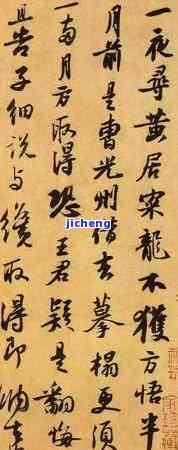 一夜尋黃居寀龍不獲方悟半
月前是曹光州借去摹搨更須
一兩月方取得恐王君疑是翻悔
且告子細說與纔取得即納
jicheng